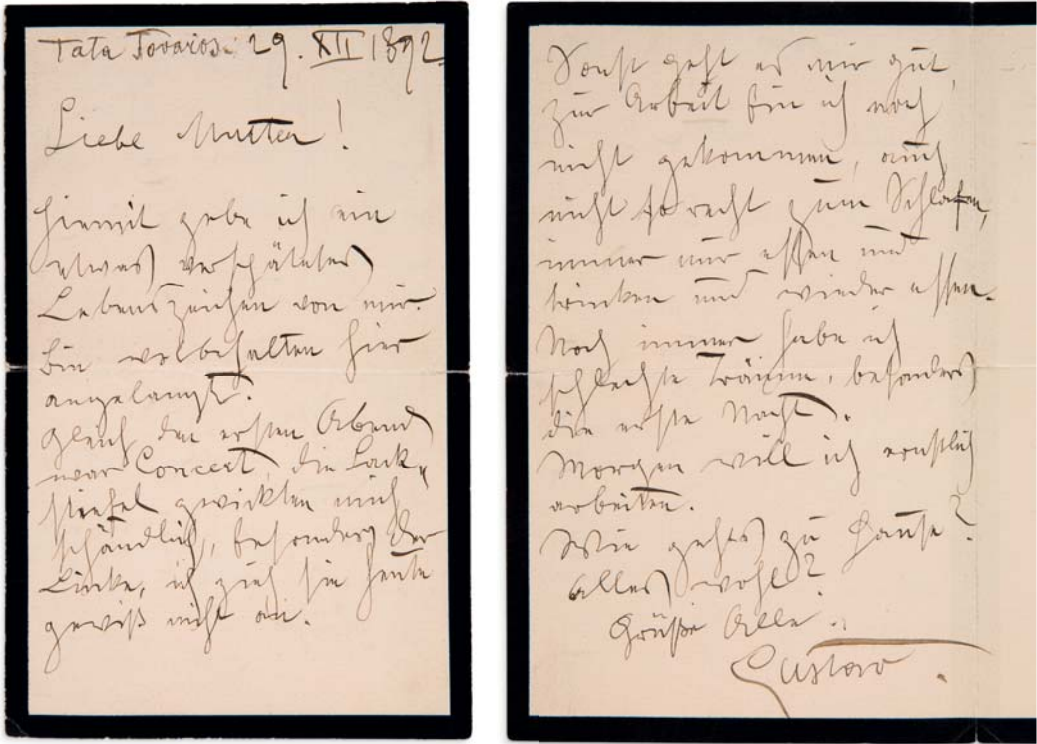 Tata Tovaros. 29. XII 1892.
Liebe Mutter!
Hiemit gebe ich ein
etwas verspätetes
Lebenszeichen von mir.
Bin wolbehalten hier
angelangt.
gleich den ersten Abend
war Concert, die Lack-
stiefel zwickten mich
schändlich, besonders der
Linke, ich zieh sie heute
gewiß nicht an.
Sonst geht es mir gut,
zur Arbeit bin ich noch
nicht gekommen, auch
nicht so recht zum Schlafen,
immer nur essen und
trinken und wieder essen.
Noch immer habe ich
schlechte Träume, besonders
die erste Nacht.
Morgen will ich ernstlich
arbeiten.
Wie gehts zu Hause?
Alles wohl?
Grüße Alle.
Gustav